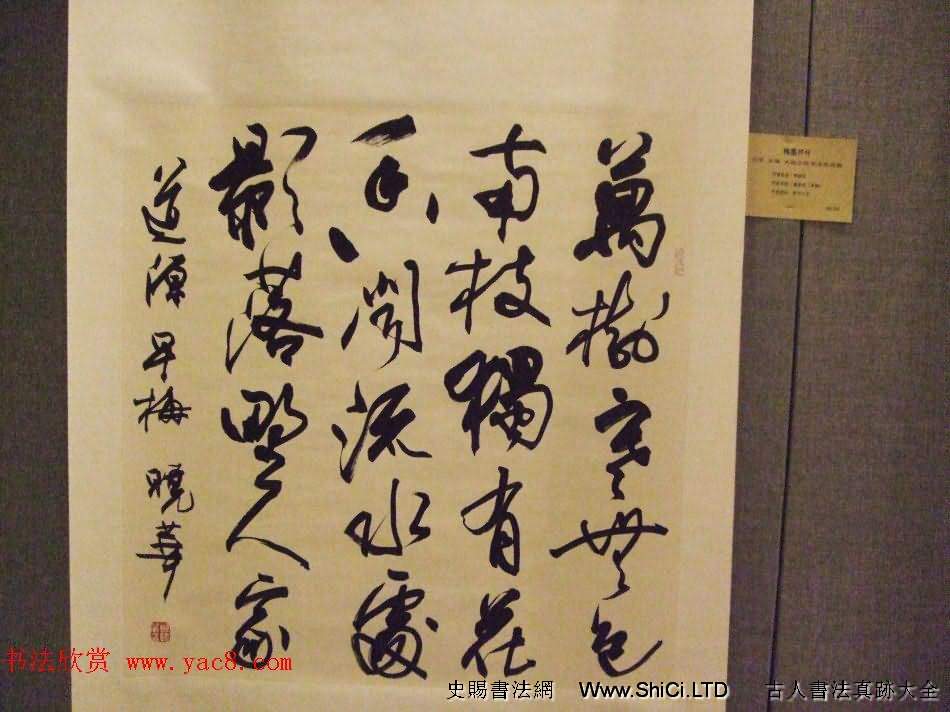 萬樹寒無色
南枝獨有花
香聞流水處
影落野人家
道源早梅 曉華
书法欣赏 www.yac8.com
史賜書法網 Www.ShiCi.LTD 古人書法真跡大全